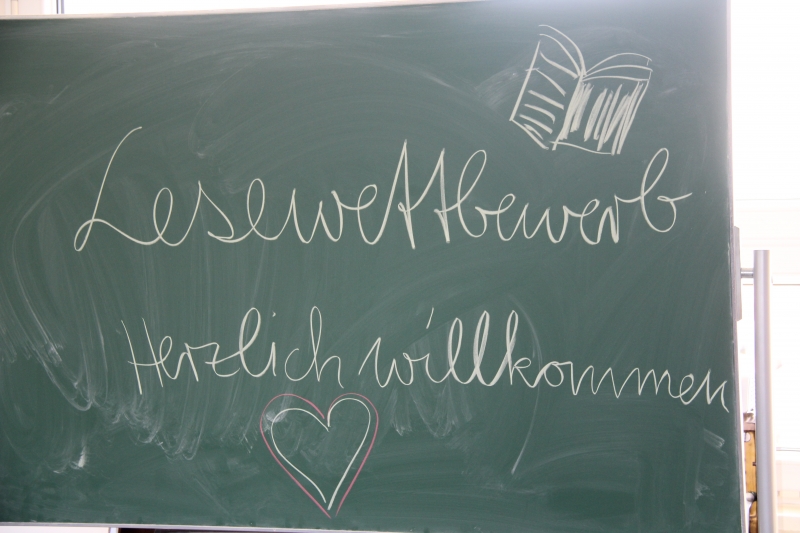 Lesewettbewerb
Herzlich willkommen